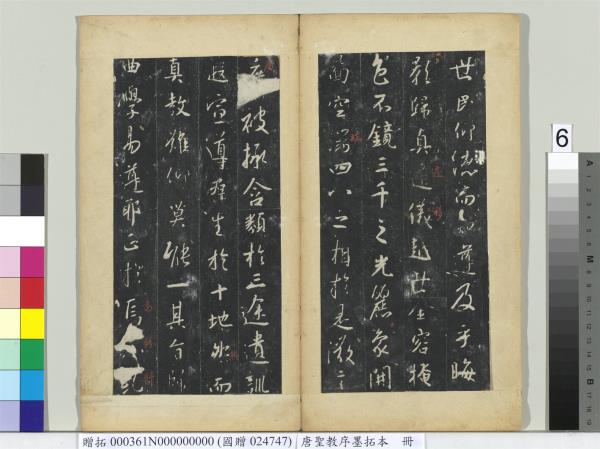 世民仰德而知遵及乎晦
影歸真遷儀越世金容掩
色不鏡三千之光麗象開
圖空端四八之相於是微言
廣被拯含類於三途遺訓
遐宣導群生於十地然而
真教難仰莫能一其旨歸
曲學易遵耶正於焉紛糺
6
贈拓 000361N000000000 (國贈 024747) 唐聖教序墨拓本 冊